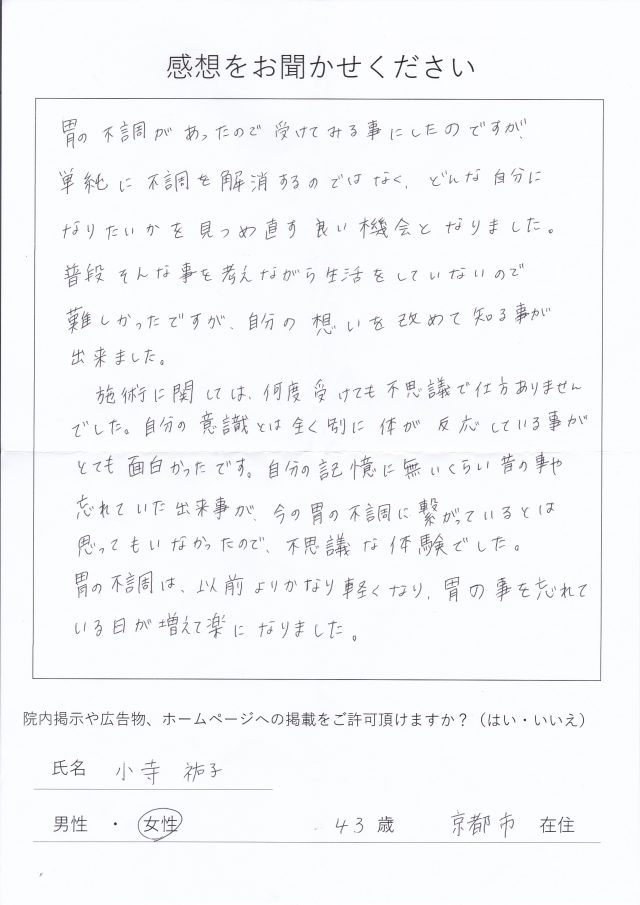 感想をお聞かせください
胃の不調があったので受けてみる事にしたのですが、
単純に不調を解消するのではなく、どんな自分に
なりたいかを見つめ直す良い機会となりました。
普段そんな事を考えながら生活をしていないので
難しかったですが、自分の想いを改めて知る事が
出来ました。
施術に関しては、何度受けても不思議で仕方ありません
でした。自分の意識とは全く別に体が反応している事が
とても面白かったです。自分の記憶に無いくらい昔の事や
忘れていた出来事が、今の胃の不調に繋がっているとは
思ってもいなかったので、不思議な体験でした。
胃の不調は、以前よりかなり軽くなり、胃の事を忘れて
いる日が増えて楽になりました。
院内掲示や広告物、ホームページへの掲載をご許可頂けますか？（はい・いいえ）
氏名 小寺 祐子
男性 ・ 女性 43 歳 京都市 在住